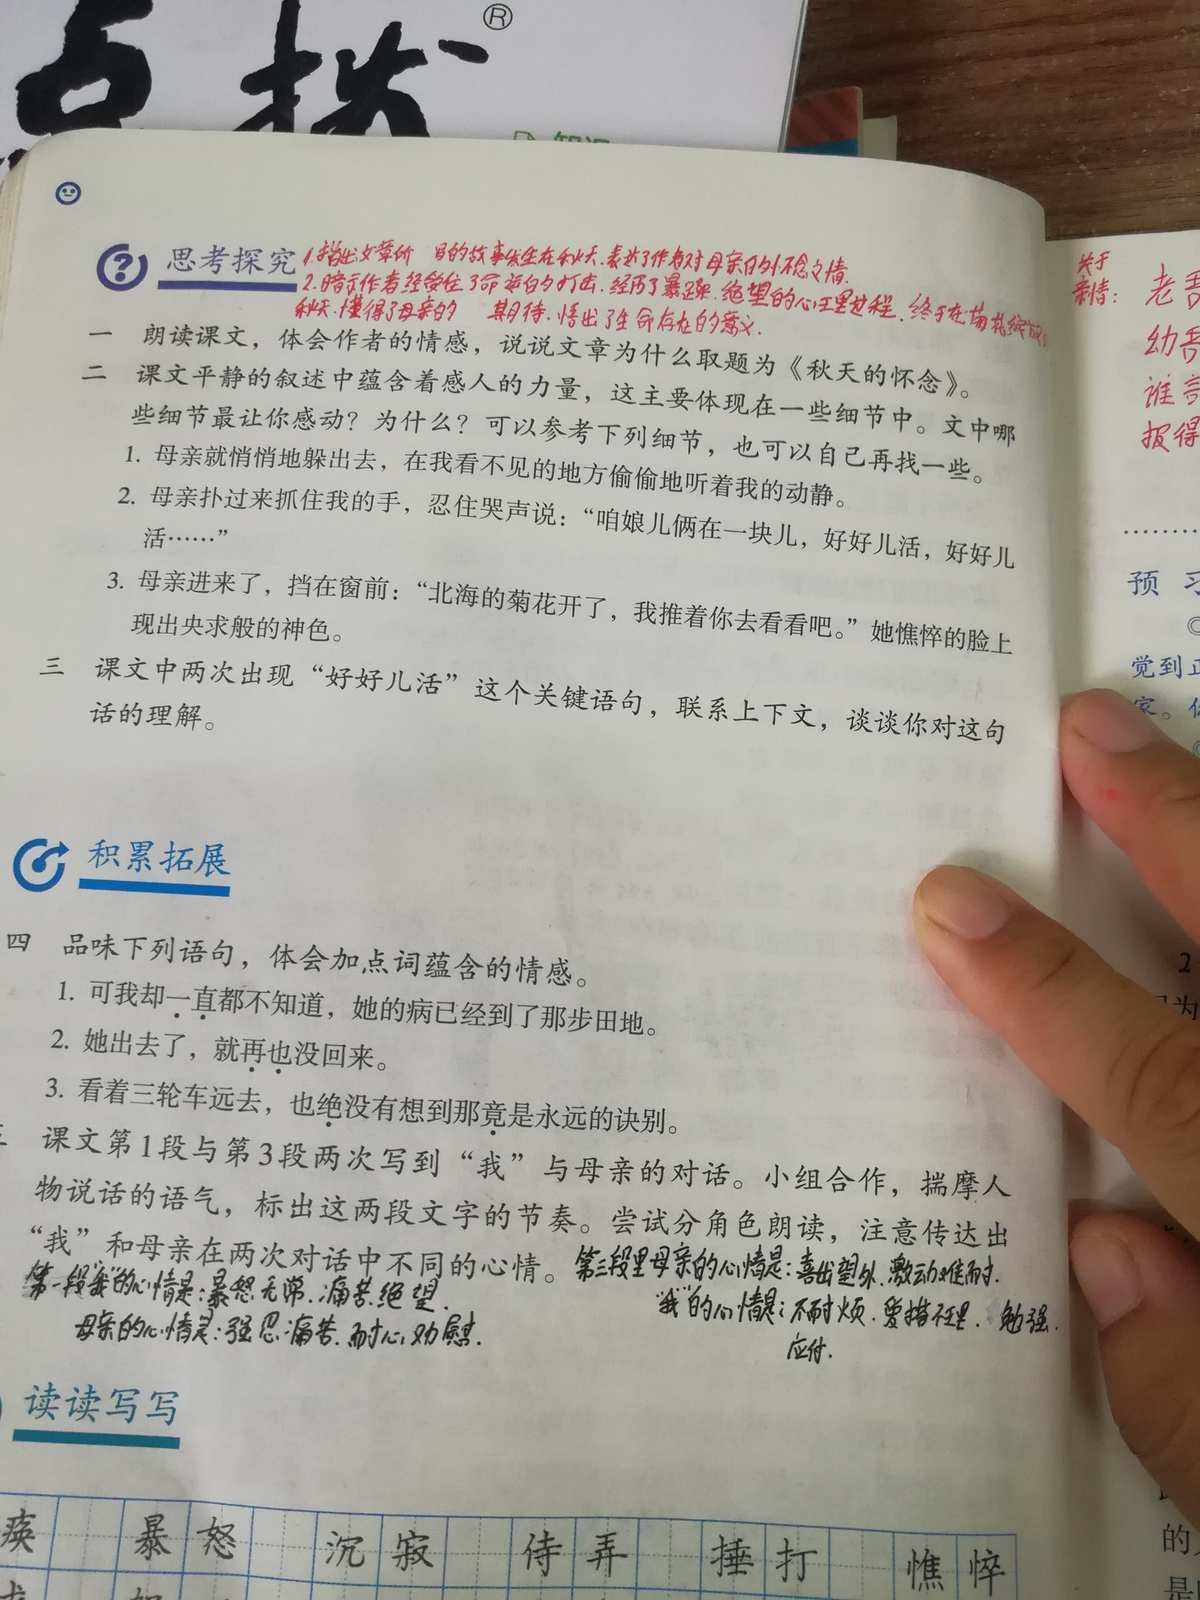 点拨®
思考探究
1.指出文章价 目的故事发生在秋天.表达了作者对母亲的怀念之情.
2.暗示作者经受住了命运的打击.经历了暴躁.绝望的心理过程.终于在菊花绽放
秋天.懂得了母亲的 期待.悟出了生命存在的意义.
一 朗读课文，体会作者的情感，说说文章为什么取题为《秋天的怀念》。
二 课文平静的叙述中蕴含着感人的力量，这主要体现在一些细节中。文中哪
些细节最让你感动？为什么？可以参考下列细节，也可以自己再找一些。
1. 母亲就悄悄地躲出去，在我看不见的地方偷偷地听着我的动静。
2. 母亲扑过来抓住我的手，忍住哭声说：“咱娘儿俩在一块儿，好好儿活，好好儿
活……”
3. 母亲进来了，挡在窗前：“北海的菊花开了，我推着你去看看吧。”她憔悴的脸上
现出央求般的神色。
三 课文中两次出现“好好儿活”这个关键语句，联系上下文，谈谈你对这句
话的理解。
积累拓展
四 品味下列语句，体会加点词蕴含的情感。
1. 可我却一直都不知道，她的病已经到了那步田地。
2. 她出去了，就再也没回来。
3. 看着三轮车远去，也绝没有想到那竟是永远的诀别。
课文第1段与第3段两次写到“我”与母亲的对话。小组合作，揣摩人
物说话的语气，标出这两段文字的节奏。尝试分角色朗读，注意传达出
“我”和母亲在两次对话中不同的心情。
第一段“我”的心情是：暴怒无常.痛苦绝望.
母亲的心情是：强忍痛苦.耐心劝慰.
第三段里母亲的心情是：喜出望外.激动难耐.
“我”的心情是：不耐烦.爱搭不理.勉强.
应付.
读读写写
痪 暴怒 沉寂 侍弄 捶打 憔悴
关于
亲情：
老吾
幼吾
谁言
报得
预习
觉到正
家。
2
的